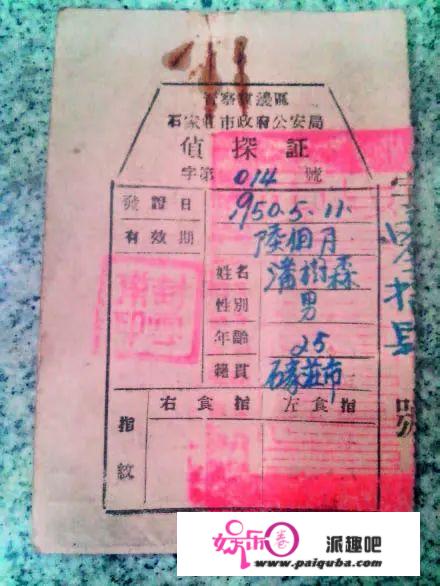 晋察冀邊區
石家莊市政府公安局
偵探証
字第014號
發證日 1950.5.11.
有效期 陸個月
姓名 潘樹森
性別 男
年齡 25
籍貫 石家莊市
指紋 右食指 左食指
號
娱乐卷 派趣吧
www.paiquba.com